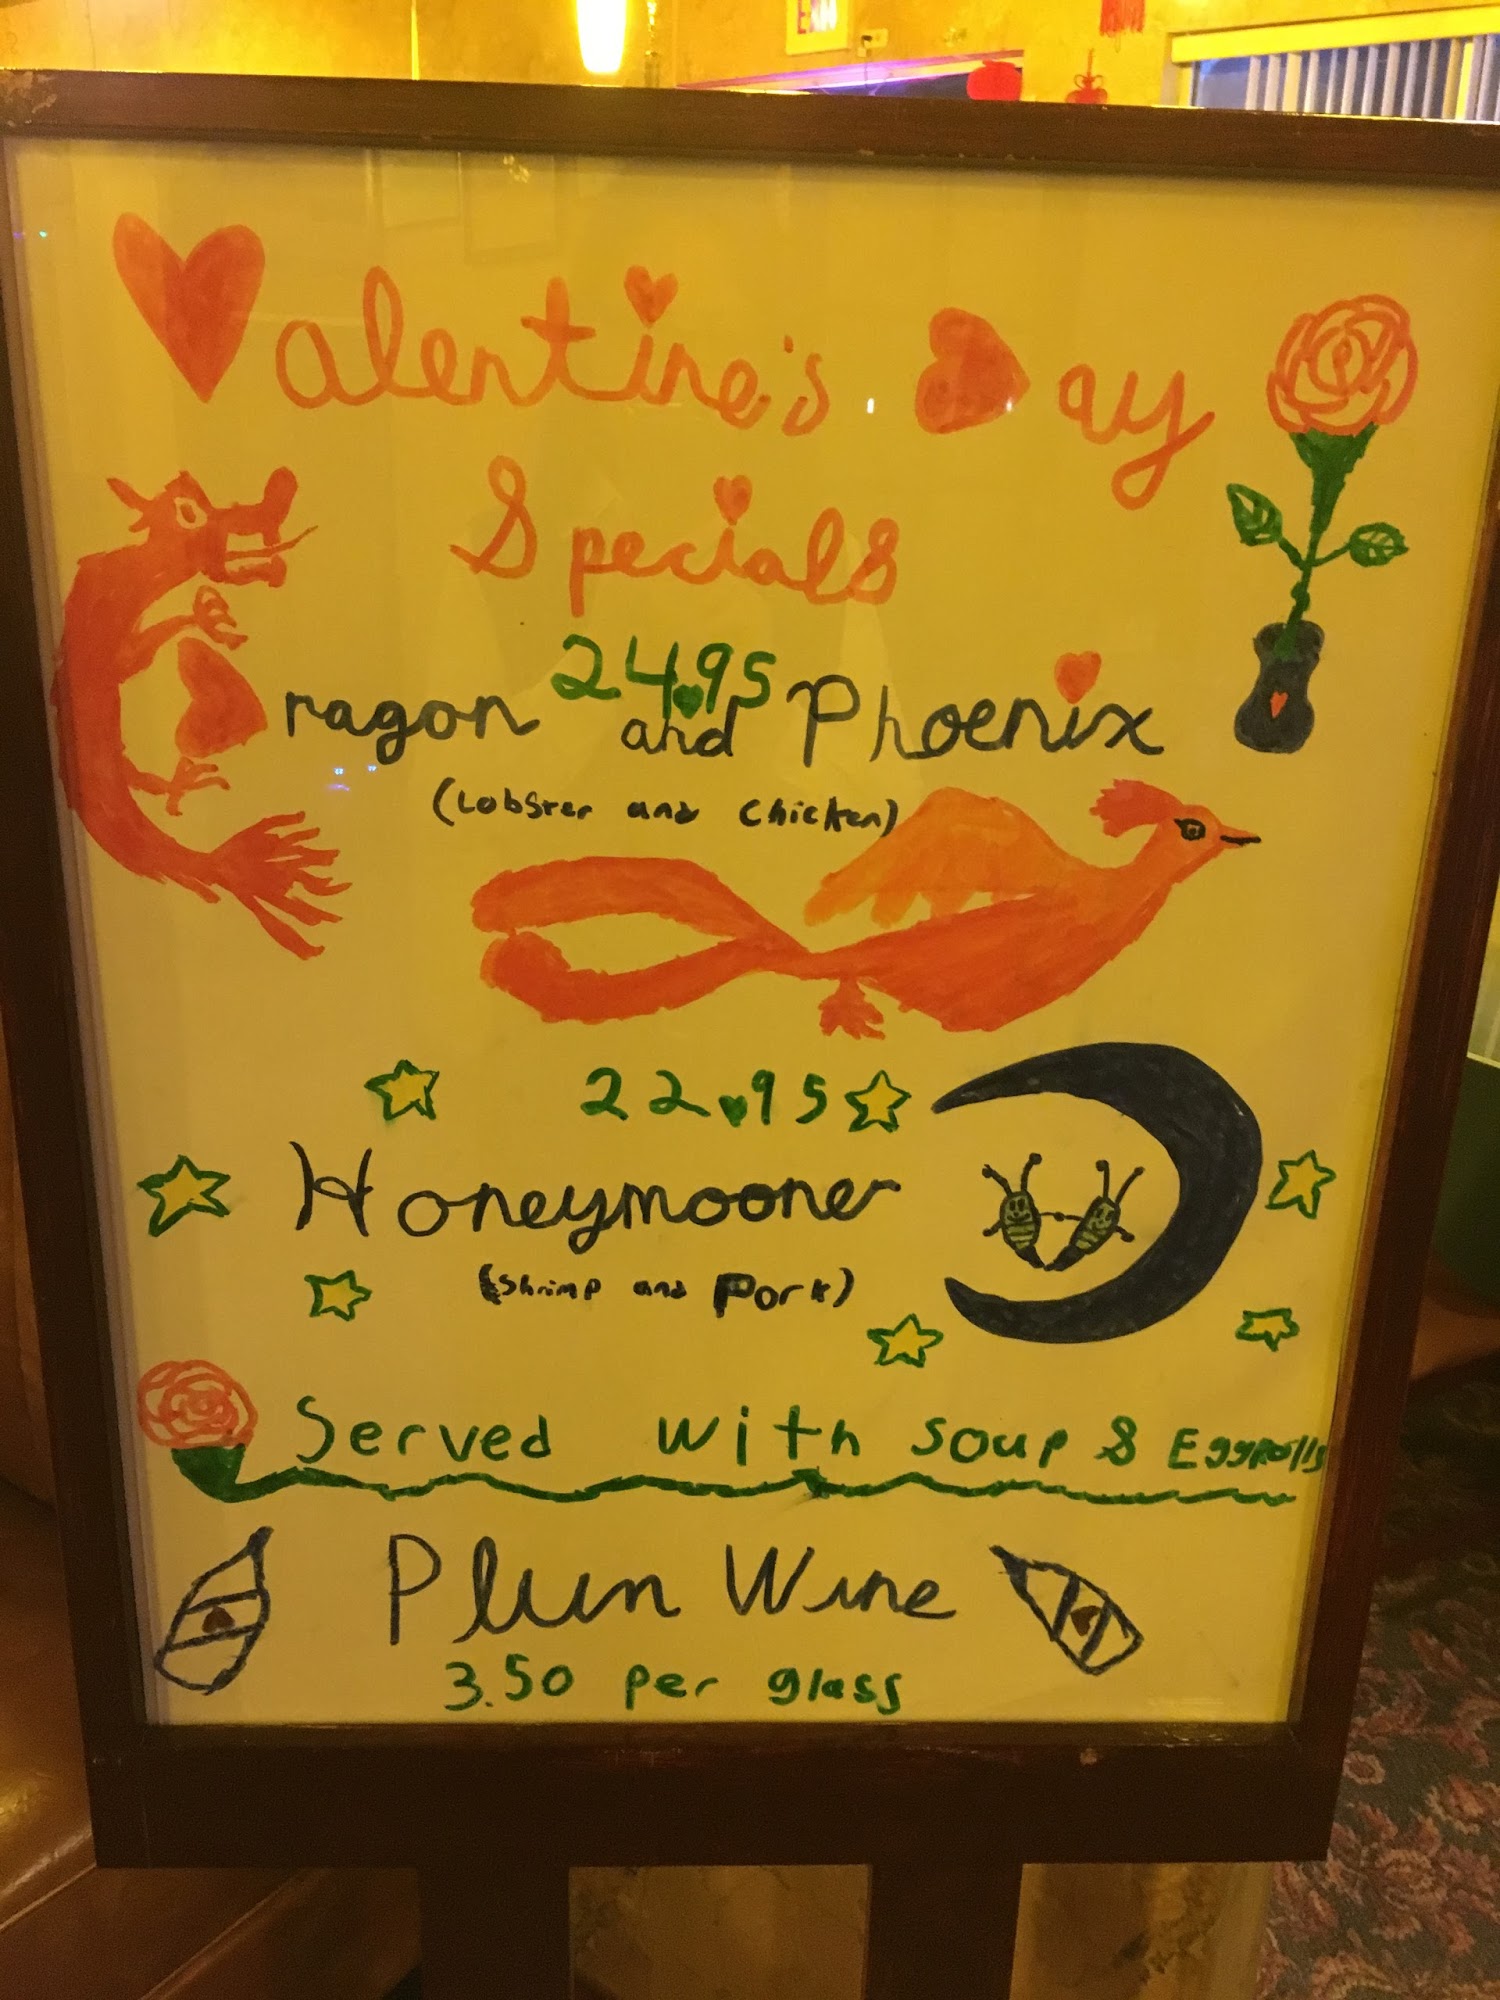 EXIT
Valentine's Day
Specials
24.95
Dragon and Phoenix
(Lobster and Chicken)
22.95
Honeymooner
(Shrimp and Pork)
Served with Soup & Eggrolls
Plum Wine
3.50 per glass